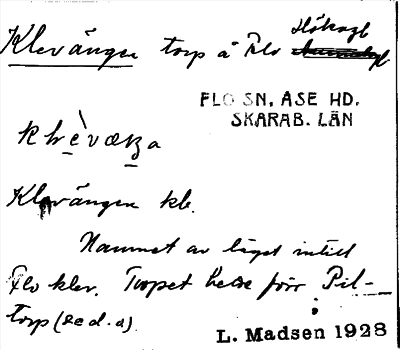 Klevängen torp å Flo Hökagb
FLO SN, ASE HD.
SKARAB. LÄN
klèvæŋa
Klevängen kb.
Namnet av läget intill
Flo klev. Torpet hette förr Pil-
torp (se d. o).
L. Madsen 1928